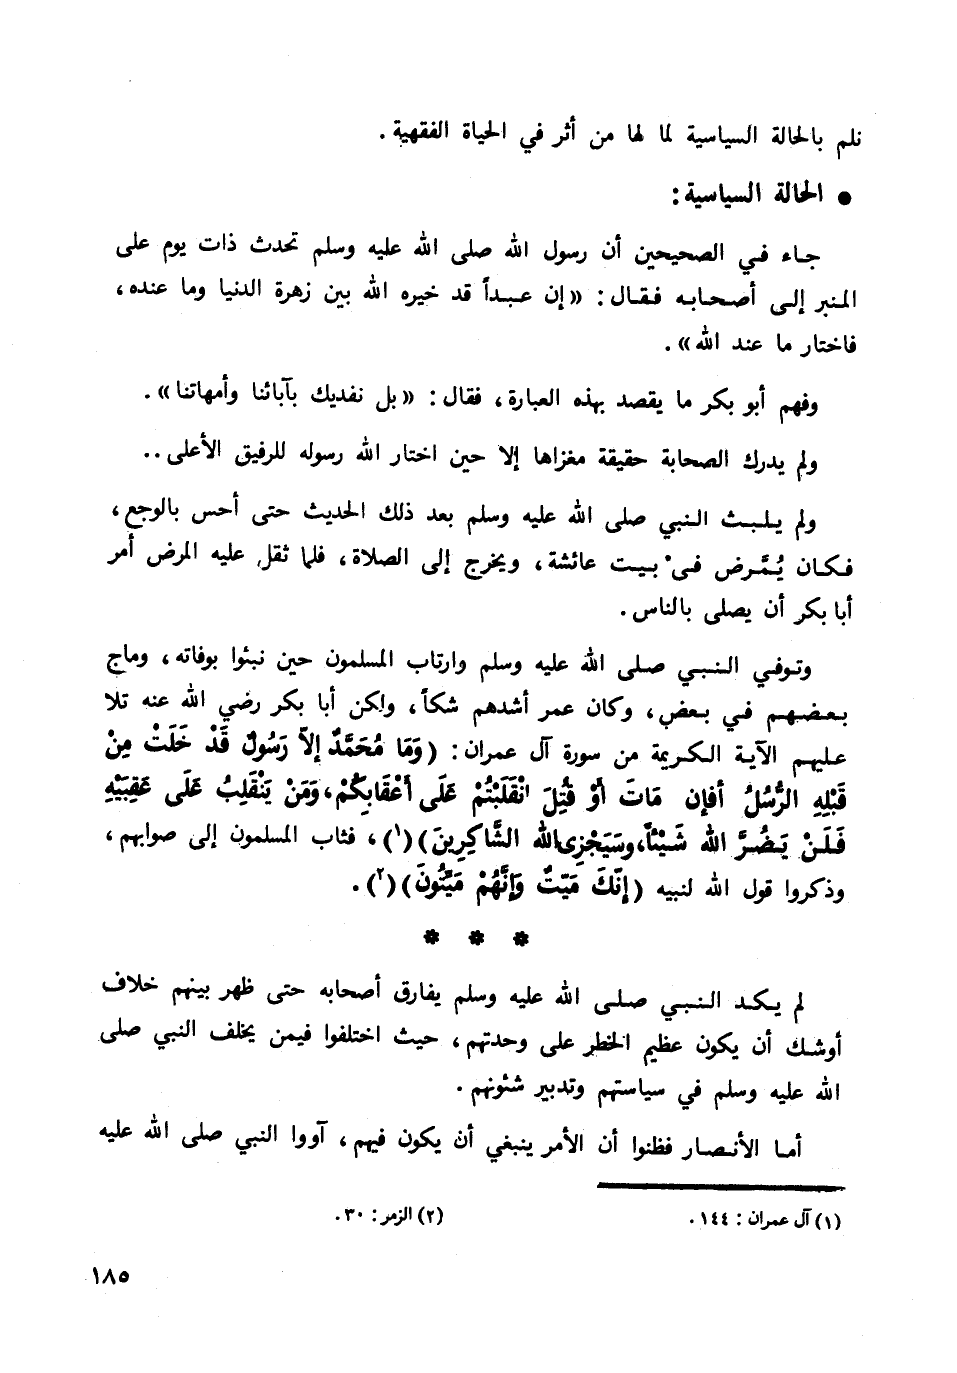 نلم بالحالة السياسية لما لها من أثر في الحياة الفقهية .
● الحالة السياسية :
جاء في الصحيحين أن رسول الله صلى الله عليه وسلم تحدث ذات يوم على
المنبر إلى أصحابه فقال : «إن عبداً قد خيره الله بين زهرة الدنيا وما عنده ،
فاختار ما عند الله» .
وفهم أبو بكر ما يقصد بهذه العبارة ، فقال : «بل نفديك بآبائنا وأمهاتنا» .
ولم يدرك الصحابة حقيقة مغزاها إلا حين اختار الله رسوله للرفيق الأعلى ..
ولم يلبث النبي صلى الله عليه وسلم بعد ذلك الحديث حتى أحس بالوجع ،
فكان يُمَّرض في بيت عائشة ، ويخرج إلى الصلاة ، فلما ثقل عليه المرض أمر
أبا بكر أن يصلى بالناس .
وتوفي النبي صلى الله عليه وسلم وارتاب المسلمون حين نبئوا بوفاته ، وماج
بعضهم في بعض ، وكان عمر أشدهم شكاً ، ولكن أبا بكر رضي الله عنه تلا
عليهم الآية الكريمة من سورة آل عمران : (وَمَا مُحَمَّدٌ إلاَّ رَسُولٌ قَدْ خَلَتْ مِنْ
قَبْلِهِ الرُّسُلُ أفإن مَاتَ أَوْ قُتِلَ انْقَلَبْتُمْ عَلَى أَعْقَابِكُمْ ، وَمَنْ يَنْقَلِبُ عَلَى عَقِبَيْهِ
فَلَنْ يَضُرَّ الله شَيْئاً، وسَيَجْزِى الله الشَّاكِرِينَ) (١) ، فثاب المسلمون إلى صوابهم ،
وذكروا قول الله لنبيه (إِنَّكَ مَيّتٌ وَإِنَّهُمْ مَيِّتُونَ) (٢) .
* * *
لم يكد النبي صلى الله عليه وسلم يفارق أصحابه حتى ظهر بينهم خلاف
أوشك أن يكون عظيم الخطر على وحدتهم ، حيث اختلفوا فيمن يخلف النبي صلى
الله عليه وسلم في سياستهم وتدبير شئونهم .
أما الأنصار فظنوا أن الأمر ينبغي أن يكون فيهم ، آووا النبي صلى الله عليه
(١) آل عمران : ١٤٤ . (٢) الزمر : ٣٠ .
١٨٥